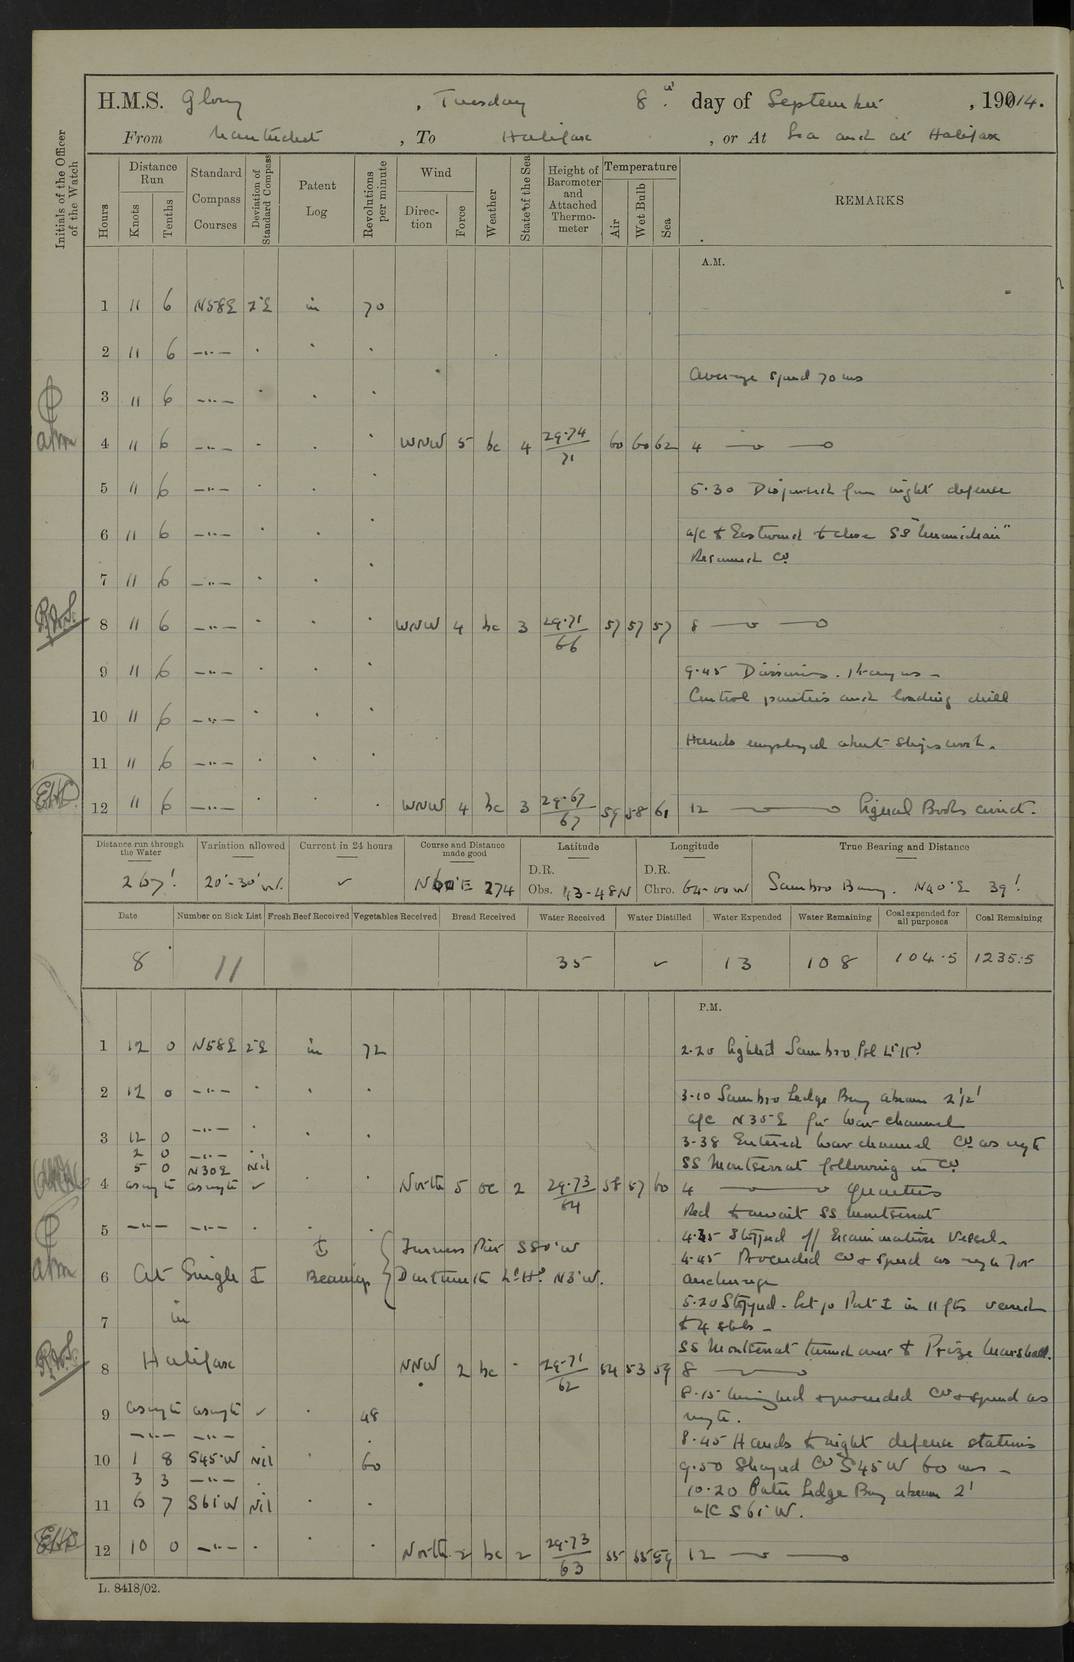 H.M.S. Glory, Tuesday 8th day of September, 191014.
From Nantucket, To Halifax, or At Sea and at Halifax
Initials of the Officer of the Watch
Hours
Distance Run
Knots
Tenths
Standard Compass Courses
Deviation of Standard Compass
Patent Log
Revolutions per minute
Wind
Direction
Force
Weather
State of the Sea
Height of Barometer and Attached Thermometer
Temperature
Air
Wet Bulb
Sea
REMARKS
A.M.
1 11 6 N58E 2°E in 70
2 11 6 —"—
Average speed 70 ms
3 11 6 —"—
4 11 6 —"— WNW 5 bc 4 29.74/71 60 60 62 4
5 11 6 —"— 5.30 from night defence
6 11 6 —"— a/c to Eastward to close SS "Numidian"
Resumed Co
7 11 6 —"—
8 11 6 —"— WNW 4 bc 3 29.71/66 57 57 57 8
9 11 6 —"— 9.45 Divisions. Prayers –
Control parties and loading drill
10 11 6 —"—
Hands employed about ships work.
11 11 6 —"—
12 11 6 —"— WNW 4 bc 3 29.67/67 59 58 61 12 Signal Books correct.
Distance run through the Water
Variation allowed
Current in 24 hours
Course and Distance made good
Latitude
Longitude
True Bearing and Distance
267' 20°-30'W. ✓ N60°E 274 D.R. Obs. 43-48N D.R. Chro. 64-00W Sambro Buoy. N40°E 39'
Date
Number on Sick List
Fresh Beef Received
Vegetables Received
Bread Received
Water Received
Water Distilled
Water Expended
Water Remaining
Coal expended for all purposes
Coal Remaining
8 11 35 ✓ 13 108 104.5 1235.5
P.M.
1 12 0 N58E 2°E in 72 2.20 Sighted Sambro Isl Lt Ho
2 12 0 —"— 3.10 Sambro Ledge Buoy abeam 2½'
a/c N35E for War channel
3 12 0 —"— 3.38 Entered War channel Co as reqte
2 0 —"—
5 0 N30E Nil SS Montserrat following in Co
4 as reqte as reqte ✓ North 5 oc 2 29.73/64 58 57 60 4 Quarters
Red to await SS Montserrat
5 —"— —"— 4.35 Stopped off Examination Vessel.
Furness Pier S80°W
4.45 Proceeded Co & speed as reqte for
6 At Single ⚓ Bearings Dartmouth Lt Ho N3°W.
anchorage
5.20 Stopped. Let go Port ⚓ in 11 fms veered
7 in to 4 shls –
SS Montserrat turned over to Prize Marshall.
8 Halifax NNW 2 bc 29.71/62 54 53 59 8
8.15 Weighed & proceeded Co & speed as
9 as reqte as reqte ✓ 48 reqte.
—"— —"— 8.45 Hands to night defence stations
10 1 8 S45°W Nil 60 9.50 Shaped Co S45W 60 ms –
3 3 —"— 10.20 Outer Ledge Buoy abeam 2'
11 6 7 S61°W Nil a/c S61°W.
12 10 0 —"— North 2 bc 2 29.73/63 55 55 59 12
L. 8418/02.